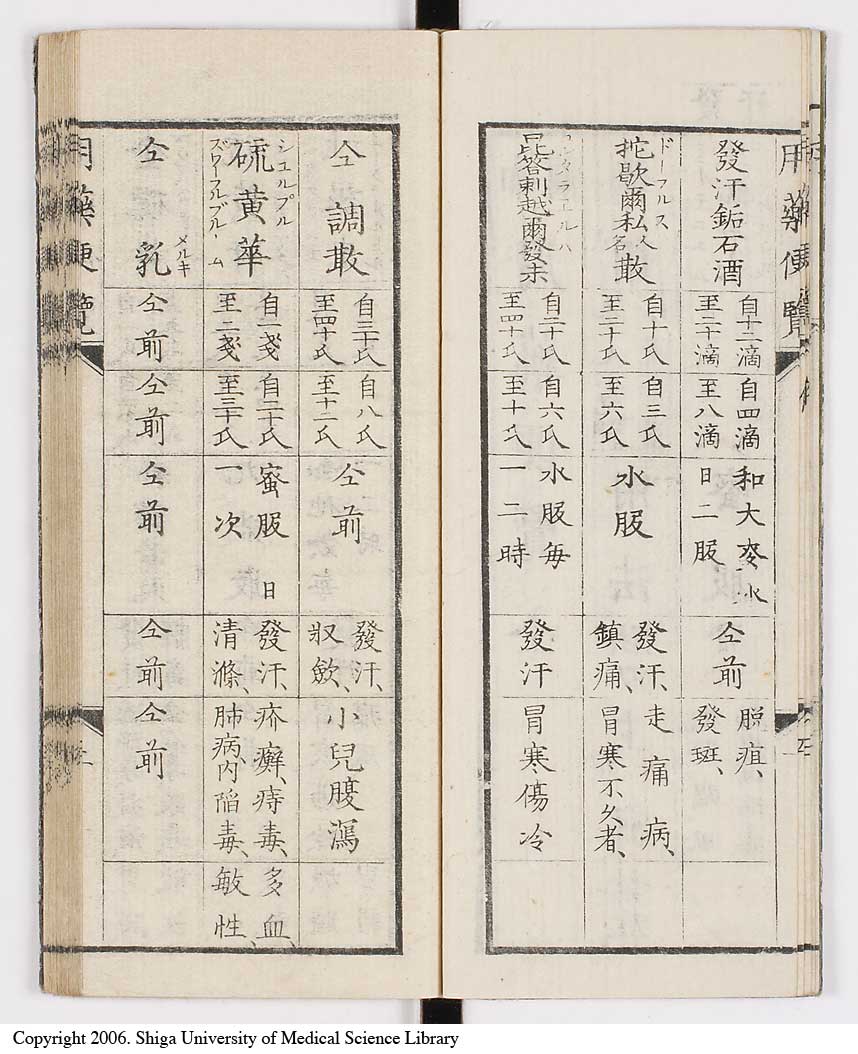 用藥便覽
發汗鉐石酒
自十二滴
至二十滴
自四滴
至八滴
和大麥水
日二服
仝前
脱疽、
發斑、
ドーフルス
抡歇爾私人名散
自十氏
至二十氏
自三氏
至六氏
水服
發汗、
鎮痛、
走痛病、
冒寒不久者、
昆答刺越爾發末
自二十氏
至四十氏
自六氏
至十氏
水服每
一二時
發汗
冒寒傷冷
仝調散
自三十氏
至四十氏
自八氏
至十二氏
仝前
發汗、
収斂、
小兒腹瀉
シユルプル
硫黄華
ズワーフルブルーム
自一戔
至二戔
自二十氏
至三十氏
蜜服日
一次
發汗、
清滌、
疥癬、痔毒、
肺病、内陥毒、
多血、
敏性、
仝乳
メルキ
仝前
仝前
仝前
仝前
仝前
用藥便覽